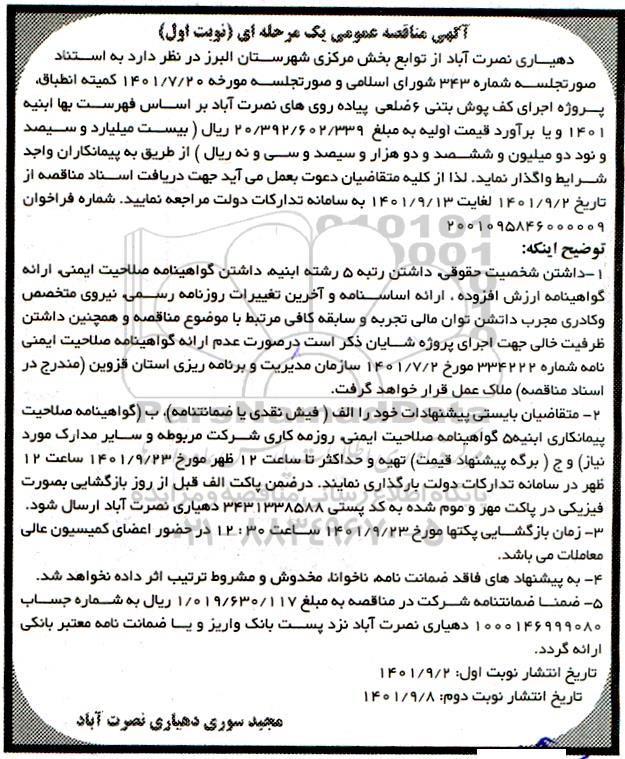 آگهی مناقصه عمومی یک مرحله ای (نوبت اول)
دهیاری نصرت آباد از توابع بخش مرکزی شهرستان البرز در نظر دارد به استناد
صورتجلسه شماره ۳۴۳ شورای اسلامی و صورتجلسه مورخه ۱۴۰۱/۷/۲۰ کمیته انطباق،
پروژه اجرای کف پوش بتنی ۶ضلعی پیاده روی های نصرت آباد بر اساس فهرست بها ابنیه
۱۴۰۱ و یا برآورد قیمت اولیه به مبلغ ۲۰/۳۹۲/۶۰۲/۳۳۹ ریال ( بیست میلیارد و سیصد
و نود دو میلیون و ششصد و دو هزار و سیصد و سی و نه ریال ) از طریق به پیمانکاران واجد
شرایط واگذار نماید. لذا از کلیه متقاضیان دعوت بعمل می آید جهت دریافت اسناد مناقصه از
تاریخ ۱۴۰۱/۹/۲ لغایت ۱۴۰۱/۹/۱۳ به سامانه تدارکات دولت مراجعه نمایید. شماره فراخوان
۲۰۰۱۰۹۵۸۴۶۰۰۰۰۰۹
توضیح اینکه:
۱-داشتن شخصیت حقوقی، داشتن رتبه ۵ رشته ابنیه، داشتن گواهینامه صلاحیت ایمنی، ارائه
گواهینامه ارزش افزوده ، ارائه اساسنامه و آخرین تغییرات روزنامه رسمی، نیروی متخصص
وکادری مجرب داتشن توان مالی تجربه و سابقه کافی مرتبط با موضوع مناقصه و همچنین داشتن
ظرفیت خالی جهت اجرای پروژه شایان ذکر است درصورت عدم ارائه گواهینامه صلاحیت ایمنی
نامه شماره ۳۳۴۲۲۲ مورخ ۱۴۰۱/۷/۲ سازمان مدیریت و برنامه ریزی استان قزوین (مندرج در
اسناد مناقصه) ملاک عمل قرار خواهد گرفت.
۲- متقاضیان بایستی پیشنهادات خود را الف ( فیش نقدی یا ضمانتنامه)، ب (گواهینامه صلاحیت
پیمانکاری ابنیه۵ گواهینامه صلاحیت ایمنی، روزمه کاری شرکت مربوطه و سایر مدارک مورد
نیاز) و ج ( برگه پیشنهاد قیمت) تهیه و حداکثر تا ساعت ۱۲ ظهر مورخ ۱۴۰۱/۹/۲۳ ساعت ۱۲
ظهر در سامانه تدارکات دولت بارگذاری نمایند. درضمن پاکت الف قبل از روز بازگشایی بصورت
فیزیکی در پاکت مهر و موم شده به کد پستی ۳۴۳۱۳۳۸۵۸۸ دهیاری نصرت آباد ارسال شود.
۳- زمان بازگشایی پکتها مورخ ۱۴۰۱/۹/۲۳ ساعت ۱۲:۳۰ در حضور اعضای کمیسیون عالی
معاملات می باشد.
۴- به پیشنهاد های فاقد ضمانت نامه، ناخوانا، مخدوش و مشروط ترتیب اثر داده نخواهد شد.
۵- ضمنا ضمانتنامه شرکت در مناقصه به مبلغ ۱/۰۱۹/۶۳۰/۱۱۷ ریال به شماره حساب
۱۰۰۰۱۴۶۹۹۹۰۸۰ دهیاری نصرت آباد نزد پست بانک واریز و یا ضمانت نامه معتبر بانکی
ارائه گردد.
تاریخ انتشار نوبت اول: ۱۴۰۱/۹/۲
تاریخ انتشار نوبت دوم: ۱۴۰۱/۹/۸
مجید سوری دهیاری نصرت آباد